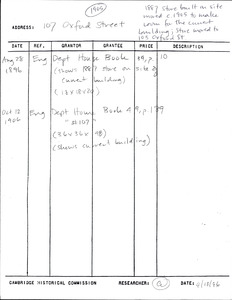 1906
1887 store built on site
moved c 1905 to make
room for the current
building; store moved to
105 Oxford St
ADDRESS: 107 Oxford Street
DATE REF. GRANTOR GRANTEE PRICE DESCRIPTION
Aug 28 Eng Dept House Book 39, p. 10
1896 (shows 1887 store on site of
current building)
(18x18x20)
Oct 12 Eng Dept House Book 49, p. 139
1906 "#107"
(36x36x48)
(shows current building)
CAMBRIDGE HISTORICAL COMMISSION RESEARCHER: DATE: 9/18/86